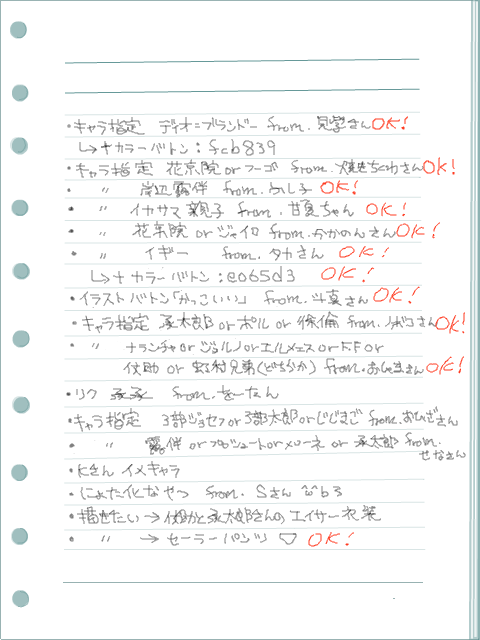 ・キャラ指定 ディオ=ブランドー from.見学さんOK!
↳+カラーバトン:fcb839
・キャラ指定 花京院orフーゴ from.焼きちくわさんOK!
・ 〃 岸辺露伴 from.ふし子 OK!
・ 〃 イカサマ親子 from.甘夏ちゃん OK!
・ 〃 花京院 or ジャイロ from.かのんさんOK!
・ 〃 イギー from.タカさん OK!
↳+カラーバトン:e065d3 OK!
・イラストバトン「かっこいい」 from.斗真さんOK!
・キャラ指定 承太郎 or ポル or 徐倫 from.ノボコさんOK!
・ 〃 ナランチャorジョルノorエルメェスorF.F or
仗助 or 虹村兄弟(どちらか) from.おしまさんOK!
・リク 承承 from.をーたん
・キャラ指定 3部ジョセフor3部太郎orじじまご from.おひざさん
・ 〃 露伴 or プロシュートorメローネ or 承太郎 from.
せなさん
・Kさん イメキャラ
・にょた化なやつ from.Sさん
・描きたい→仗助と承太郎さんのエイサー衣装
・ 〃 →セーラーパンツ ♡ OK!